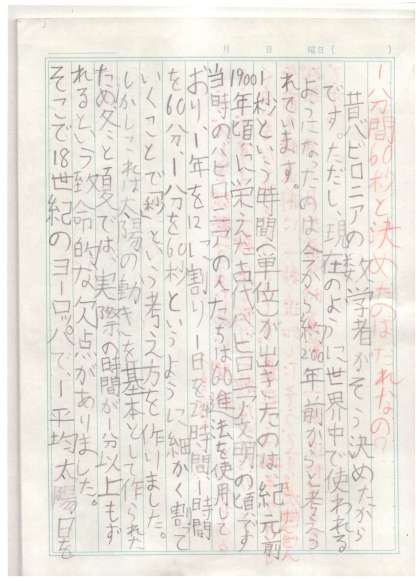 月 日 曜日( )
一分間60秒と決めたのはだれなの?
昔バビロニアの数学者がそう決めたから
です。ただし、現在のように世界中で使われる
ようになったのは今から約200年前からと考えら
れています。
1秒という時間(単位)が出きたのは、紀元前
1900年頃に栄えた古代バビロニア文明の頃です
当時のバビロニアの人たちは60進法を使用して
おり、1年を12に割り1日を24時間1時間
を60分1分を60秒というように細かく割って
いくことで「秒」という考え方を作りました。
しかしこれは太陽の動きを基本として作られた
ため冬と夏では、実際の時間が1分以上もず
れるという致命的な欠点がありました。
そこで18世紀のヨーロッパで、一平均太陽日を